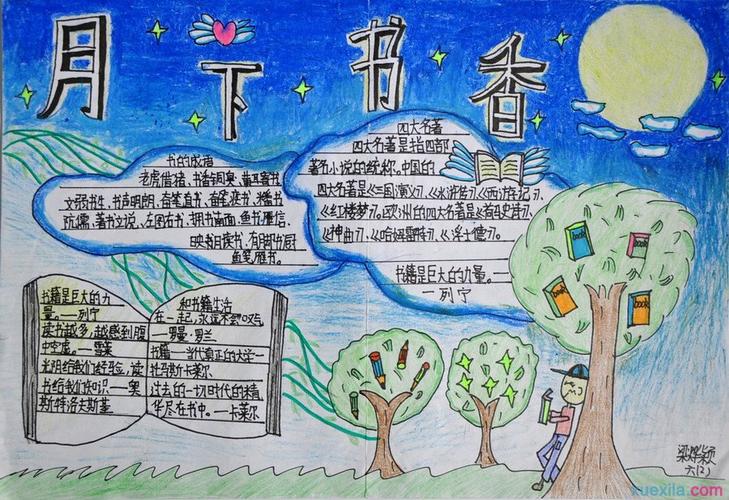 月下书香
书的成语
老虎借猪、书香同臭、黄耳寄书
文弱书生、书声朗朗、奋笔直书、奋笔疾书、焚书
坑儒、著书文说、左图右书、拥书南面、鱼书雁信、
映雪读书、有脚书厨
鱼笺雁书。
四大名著
四大名著是指四部
著名小说的统称,中国的
四大名著是《三国演义》、《水浒传》《西游记》、
《红楼梦》。欧洲的四大名著是《荷马史诗》、
《神曲》、《哈姆雷特》、《浮士德》。
书籍是巨大的力量。
—列宁
书籍是巨大的力
量。——列宁
读书越多,越感到腹
中空虚。——雪莱
光阴给我们经验,读
书给我们知识。——奥
斯特洛夫斯基
和书籍生活
在一起,永远不会叹气
——罗曼·罗兰
书籍——当代真正的大学—
托马斯卡莱尔
过去的一切时代的精
华尽在书中。——卡莱尔
book
book
book
book
六(2)
xuexila.com